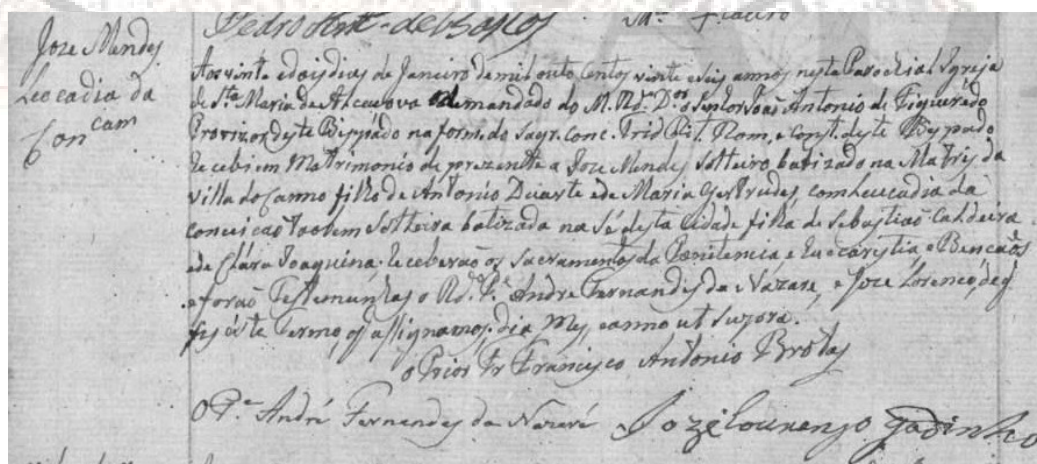 Pedro Ant.º de Bastos
Joze Mendes
Leocadia da
Con.cam
Aos vinte e dois dias de Janeiro de mil outo centos vinte e seis annos nesta Parochial Igreja
de S.ta Maria de Alcacova de mandado do M. Rd.º D.or o Senhor Joaõ Antonio de Figueredo
Provizor deste Bispado na form. do Sagr. Conc. Trid. Rit. Rom. e Const. deste Bispado
recebi em Matrimonio de prezente a Joze Mendes solteiro batizado na Matris da
villa do Canno filho de Antonio Duarte e de Maria Gertrudes com Leucadia da
conceicaõ taobem solteira batizada na Sé desta Cidade filha de Sebastiaõ Caldeira
e de Clára Joaquina, receberaõ os sacramentos da Penitencia e Eucarystia, e Bencaõs
e foraõ Testemunhas o Rd.º P.e Andre Fernandes da Názare, e Joze Lorenco, de q
fis este termo, q assignamos, dia mes, e anno ut supra.
o Prior Fr. Francisco Antonio Brotas
O P.e André Fernandes da Nazaré Jozé Lourenso Godinho